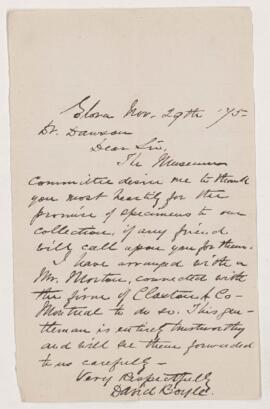 Elora Nov. 29th '75-
Dr. Dawson
Dear Sir,
The Museum
Committee desire me to thank
you most heartily for the
promise of specimens to our
collection, if any friend
will call upon you for them.
I have arranged with a
Mr. Morton, connected with
the firm of Claxton & Co-
Montreal to do so. This gen-
tleman is entirely trustworthy
and will see them forwarded
to us carefully-
Very Respectfully
David Boyle.